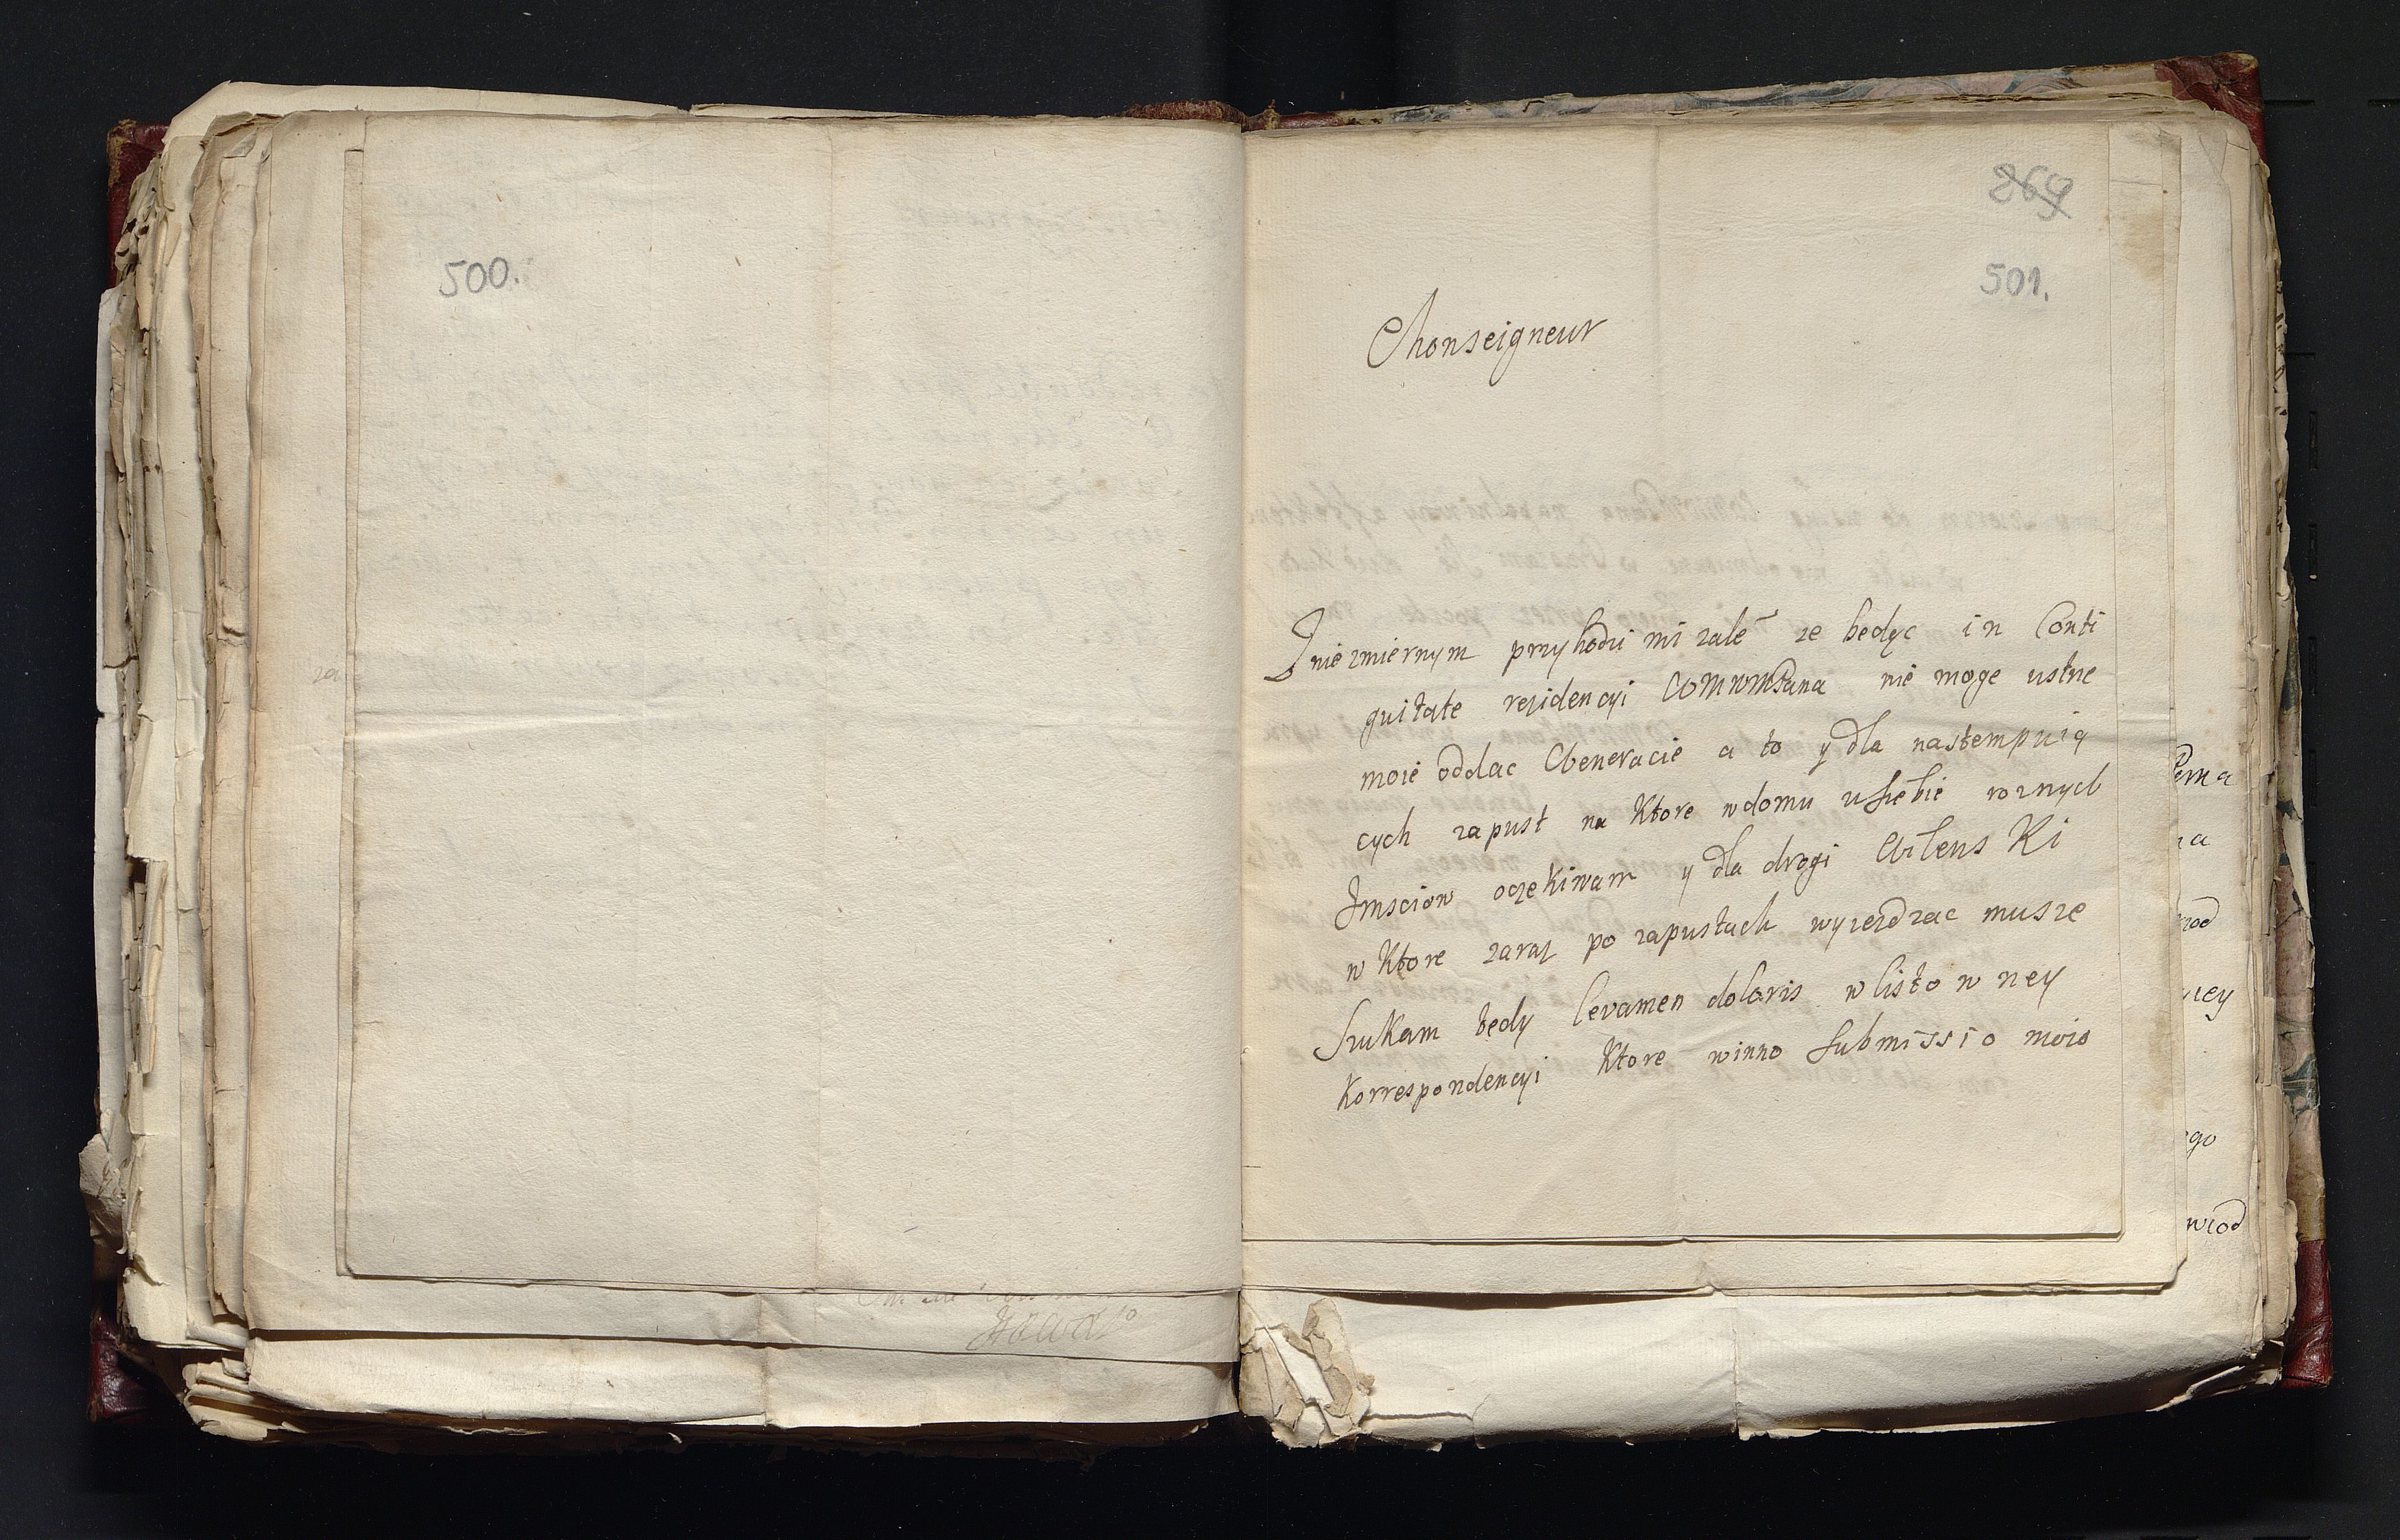 500.
269
501.
Monseigneur
Z niezmiernym przyhodzi mi zalē ze będęc in Conti
guitate rezidencyi WMWMPana nie moge ustne
moie oddac Weneracie a to y dla nastempuią
cych zapust na Ktore w domu u siebie roznych
Jmsciow oczekiwam y dla drogi WilensKi
w Ktore zaraz po zapustach wyiezdzac musze
Szukam tedy levamen doloris w listowney
Korrespondencyi Ktore winno submissio moio